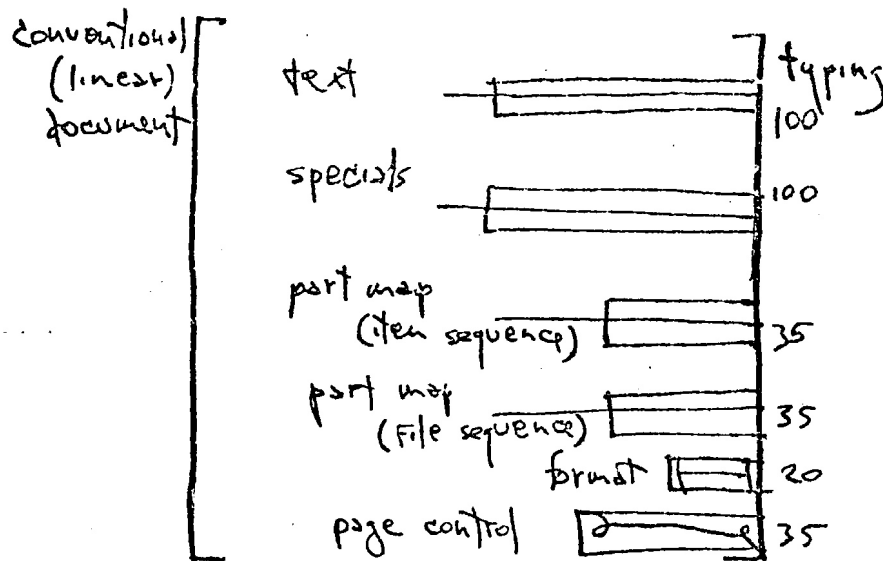 conventional
(linear)
document
text
typing
100
specials
100
part map
(item sequence)
35
part map
(File sequence)
35
format
20
page control
35